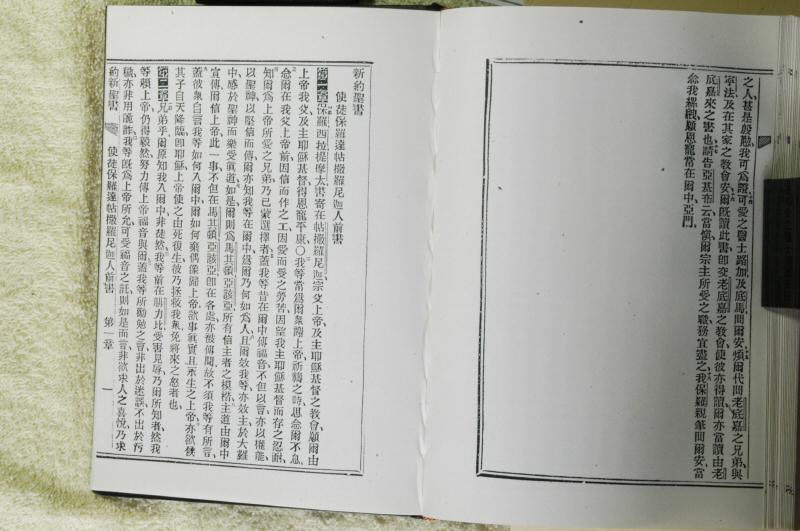 之人甚是殷懃我可為證可愛之醫士路加及底馬問爾安煩爾代問老底嘉之兄弟與
寧法及在其家之教會安爾既讀此書即交老底嘉之教會使彼亦得讀爾亦當讀由老
底嘉來之書也請告亞基布云當愼爾宗主所受之職務宜盡之我保羅親筆問爾安當
念我縲絏願恩寵常在爾中亞門
新約聖書
使徒保羅達帖撒羅尼迦人前書
第一章保羅西拉提摩太書寄在帖撒羅尼迦宗父上帝及主耶穌基督之教會願爾由
上帝我父及主耶穌基督得恩寵平康〇我等常爲爾衆謝上帝祈禱之時思念爾不息
念爾在我父上帝前因信而作之工因愛而受之勞苦因望我主耶穌基督而存之忍耐
知爾爲上帝所愛之兄弟乃已蒙選擇者蓋我等昔在爾中傳福音不但以言亦以權能
以聖神以堅信而傳爾亦知我等在爾中爲爾乃何如爲人且爾效我等亦效主於大難
中感於聖神而樂受眞道如是爾則爲馬其頓亞該亞所有信主者之模楷主道由爾中
宣傳爾信上帝此一事不但在馬其頓亞該亞即在各處亦被傳聞故不須我等有所言
蓋彼衆自言我等如何入爾中爾如何棄偶像歸上帝欲事眞實且永生之上帝亦欲俟
其子自天降臨即耶穌上帝使之由死復生彼乃拯救我衆免將來之怒者也
第二章兄弟乎爾原知我入爾中非徒然我等前在腓力比受害見辱乃爾所知者然我
等賴上帝仍得毅然努力傳上帝福音與爾蓋我等所勸勉之言非出於迷謬不出於污
穢亦非用詭詐我等既爲上帝所允可受福音之託則如是而言非欲求人之喜悅乃求
約新聖書 使徒保羅達帖撒羅尼迦人前書 第一章 一